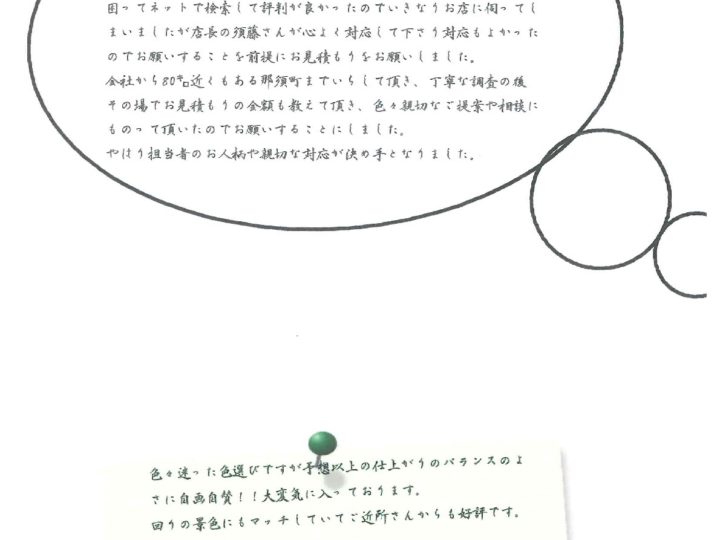 困ってネットで検索して評判が良かったのでいきなりお店に伺ってし
まいましたが店長の須藤さんが心よく対応して下さり対応もよかった
のでお願いすることを前提にお見積もりをお願いしました。
会社から80㌔近くもある那須町までいらして頂き、丁寧な調査の後
その場でお見積もりの金額も教えて頂き、色々親切なご提案や相談に
ものって頂いたのでお願いすることにしました。
やはり担当者のお人柄や親切な対応が決め手となりました。
色々迷った色選びですが予想以上の仕上がりのバランスのよ
さに自画自賛！！大変気に入っております。
回りの景色にもマッチしていてご近所さんからも好評です。